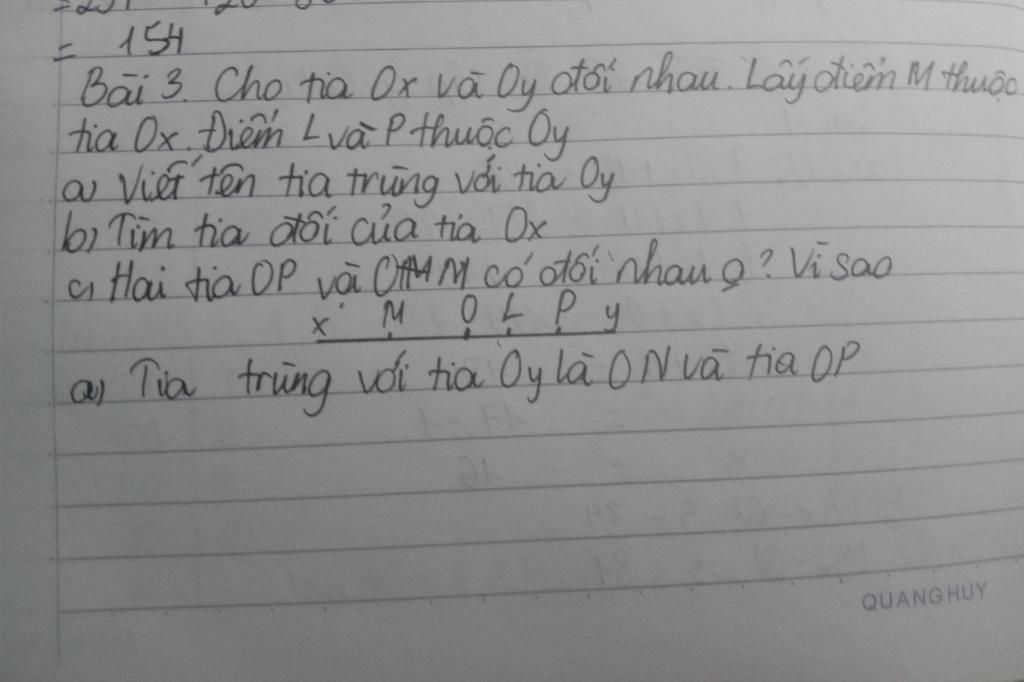 = 154
Bài 3. Cho tia Ox và Oy đối nhau. Lấy điểm M thuộc
tia Ox. Điểm L và P thuộc Oy
a) Viết tên tia trùng với tia Oy
b) Tìm tia đối của tia Ox
c) Hai tia OP và OM có đối nhau ? Vì sao
x M O L P y
a) Tia trùng với tia Oy là ON và tia OP
QUANG HUY